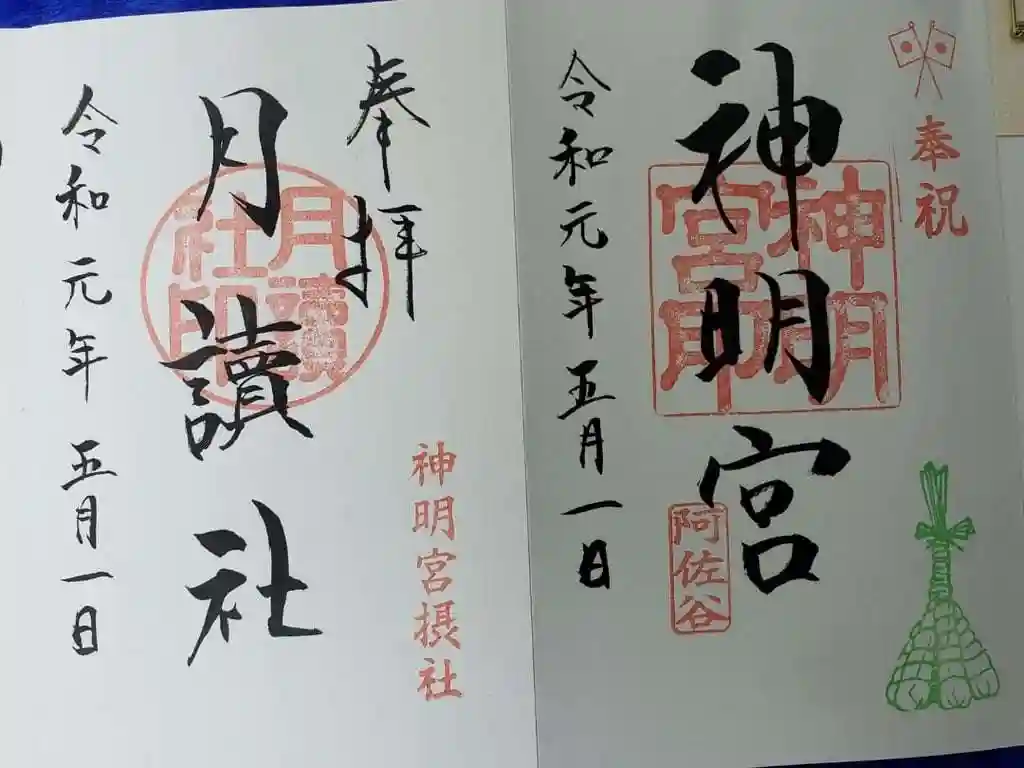 奉祝
神明宮
神明宮印
阿佐谷
令和元年五月一日
神明宮摂社
奉拝
月讀社
月讀社印
令和元年五月一日